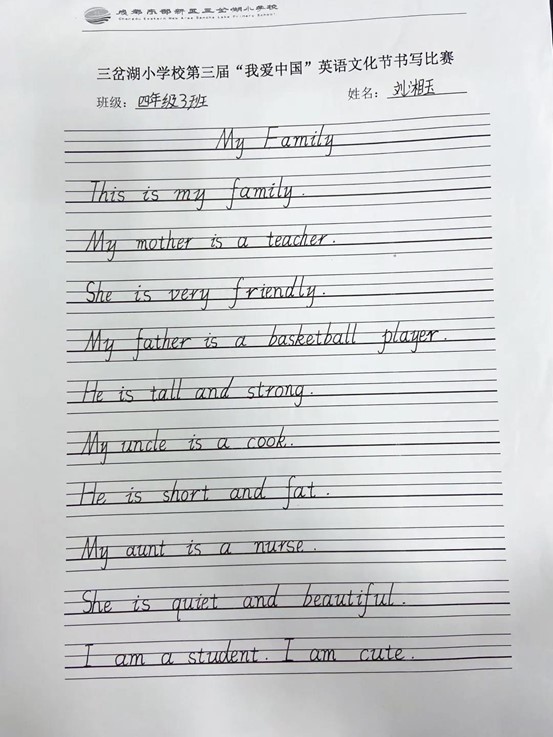 成都东部新区三岔湖小学校
Chengdu Eastern New Area Sancha Lake Primary School
三岔湖小学校第三届“我爱中国”英语文化节书写比赛
班级：四年级3班 姓名：刘湘玉
My Family
This is my family.
My mother is a teacher.
She is very friendly.
My father is a basketball player.
He is tall and strong.
My uncle is a cook.
He is short and fat.
My aunt is a nurse.
She is quiet and beautiful.
I am a student. I am cute.